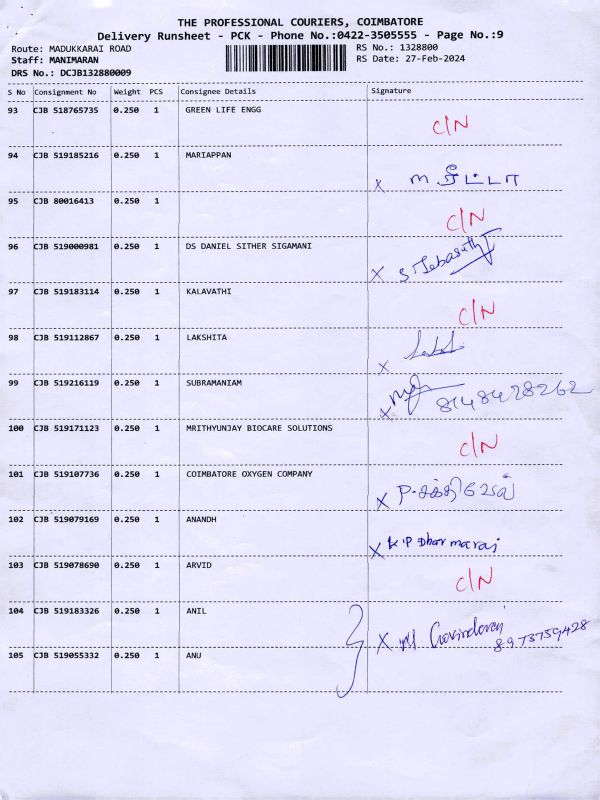 THE PROFESSIONAL COURIERS, COIMBATORE
Delivery Runsheet - PCK - Phone No.:0422-3505555 - Page No.:9
Route: MADUKKARAI ROAD RS No.: 1328800
Staff: MANIMARAN RS Date: 27-Feb-2024
DRS No.: DCJB132880009
S No Consignment No Weight PCS Consignee Details Signature
93 CJB 518765735 0.250 1 GREEN LIFE ENGG C/N
94 CJB 519185216 0.250 1 MARIAPPAN X
95 CJB 80016413 0.250 1 C/N
96 CJB 519000981 0.250 1 DS DANIEL SITHER SIGAMANI X
97 CJB 519183114 0.250 1 KALAVATHI C/N
98 CJB 519112867 0.250 1 LAKSHITA X
99 CJB 519216119 0.250 1 SUBRAMANIAM X 8148428262
100 CJB 519171123 0.250 1 MRITHYUNJAY BIOCARE SOLUTIONS C/N
101 CJB 519107736 0.250 1 COIMBATORE OXYGEN COMPANY X P.சக்திவேல்
102 CJB 519079169 0.250 1 ANANDH X K.P Dharmaraj
103 CJB 519078690 0.250 1 ARVID C/N
104 CJB 519183326 0.250 1 ANIL X M. Govindaraj
8973759428
105 CJB 519055332 0.250 1 ANU